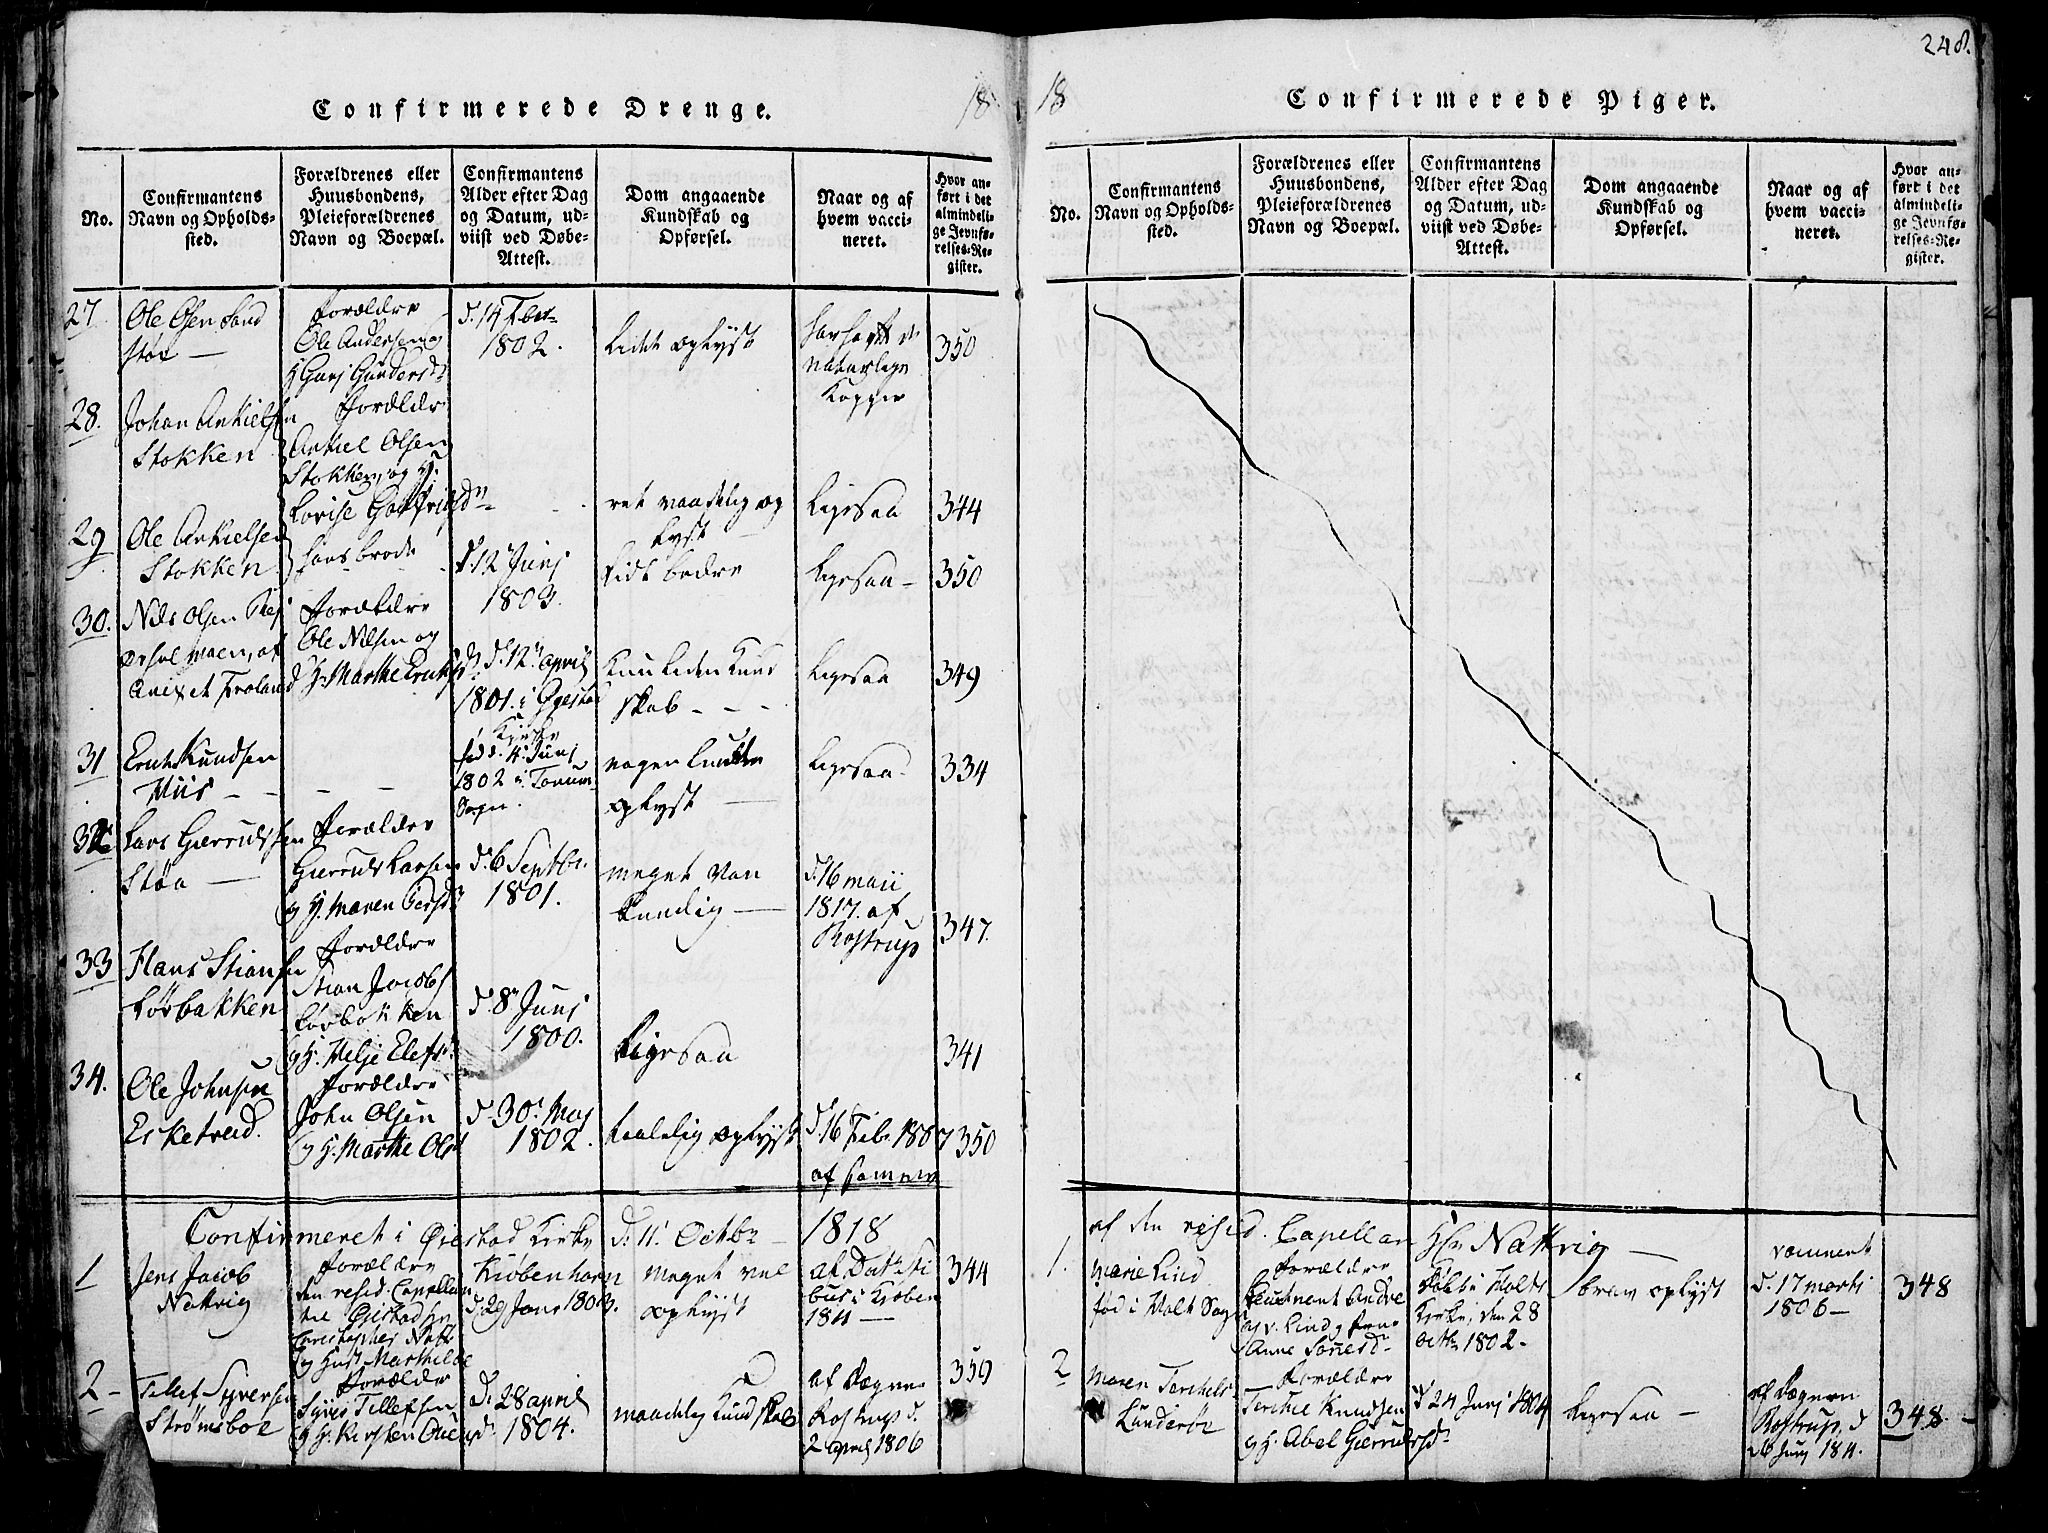 248.
Confirmerede Drenge.
18
No.
Confirmantens
Navn og Opholds-
sted.
Forældrenes eller
Huusbondens,
Pleieforældrenes
Navn og Boepæl.
Confirmantens
Alder efter Dag
og Datum, ud-
viist ved Døbe-
Attest.
Dom angaaende
Kundskab og
Opførsel.
Naar og af
hvem vacci-
neret.
Hvor an-
ført i det
almindeli-
ge Jevnfø-
relses-Re-
gister.
27.
Ole Olsen
Støa —
Forældre
Ole Andersen og
H. Gunj Gundersd.
d. 14 Febr.
1802.
lidt oplyst
har havt de
naturlige
Kopper
350
28.
Johan Ankielsen
Stokken
Forældre
Ankiel Olsen
Stokken, og H.
Lovise
ret maadelig op
lyst
Ligesaa
344
29
Ole Ankielsen
Stokken
hans brode
d. 12 Junj
1803.
lidt bedre
Ligesaa —
350
30.
Nils Olsen
af
Froland
Forældre
Ole Nilsen og
H. Marthe
d. 12 april
1801. i Øiestad
Kirke
liden Kund
skab - - -
Ligesaa
349
31
Knudsen
Miis - -
fød d. 4 Junj
1802 i
Sogn.
nogenlunde
oplyst —
Ligesaa
334
32
Lars Gierrulfsen
Støa —
Forældre
Gierruls Larsen
og H. Maren
d. 6 Septbr.
1801.
meget van
kundig —
d. 16 maii
1817. af
Rostrup
347.
33
Hans Stiansen
Lørbakken
Forældre
Stian Jacobs
Lørbakken
og H. Helje
d. 8 Junj
1800.
Ligesaa
341
34.
Ole Johnsen
Esketveid.
Forældre
John Olsen
og H. Marthe Olsd
d. 30. Maj
1802.
taalelig oplyst
d. 16 Febr. 1807
af
350
Confirmeret i Øiestad Kirke d. 11. Octbr — 1818
1
Jens Jacob
Nattvig
Forældre
den resid. Cappellan
til Øiestad
Christopher Natt
og Hust. Marthilde
Kiøbenhavn
d. 29 Janr 1803.
meget vel
oplyst
af
i Kiøben
1811 —
344
2 -
Tellef Syversen
Strømsboe
Forældre
Syver Tellefsen
og H. Kirsten
d. 28 april
1804.
maadelig Kundskab
af
Rostrup d.
2 april 1806
359
18
Confirmerede Piger.
No.
Confirmantens
Navn og Opholds-
sted.
Forældrenes eller
Huusbondens,
Pleieforældrenes
Navn og Boepæl.
Confirmantens
Alder efter Dag
og Datum, ud-
viist ved Døbe-
Attest.
Dom angaaende
Kundskab og
Opførsel.
Naar og af
hvem vacci-
neret.
Hvor an-
ført i det
almindeli-
ge Jevnfø-
relses-Re-
gister.
af den resid. Capellan Hr Nattvig —
1.
Marie Lind
fød i Holt Sogn
Forældre
Leutnant
Lind
Anne
Døbt i Holts
Kirke, den 28
octb. 1802 -
brav oplyst
vaccineret
d. 17 marts
1806 —
348
2
Maren Terchels
Forældre
Terchie Knudsen
og H. Abel Gierrulsd
d 24 Junj 1804
Ligesaa —
af
Rostrup, d
26 Junj 1811.
348. -